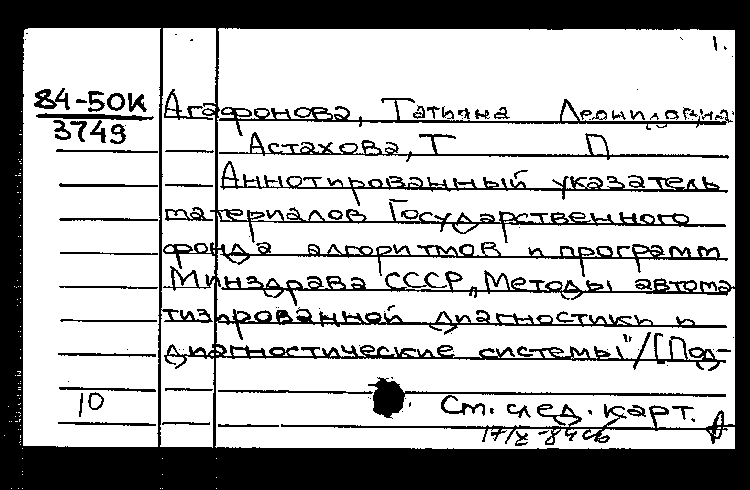 1.
84-50К Агафонова, Татьяна Леонидовна
3749 Астахова, Т П
Аннотированный указатель
материалов Государственного
фонда алгоритмов и программ
Минздрава СССР „Методы автома
тизированной диагностики и
диагностические системы"/[Под-
10 См. след. карт.
17/X-84